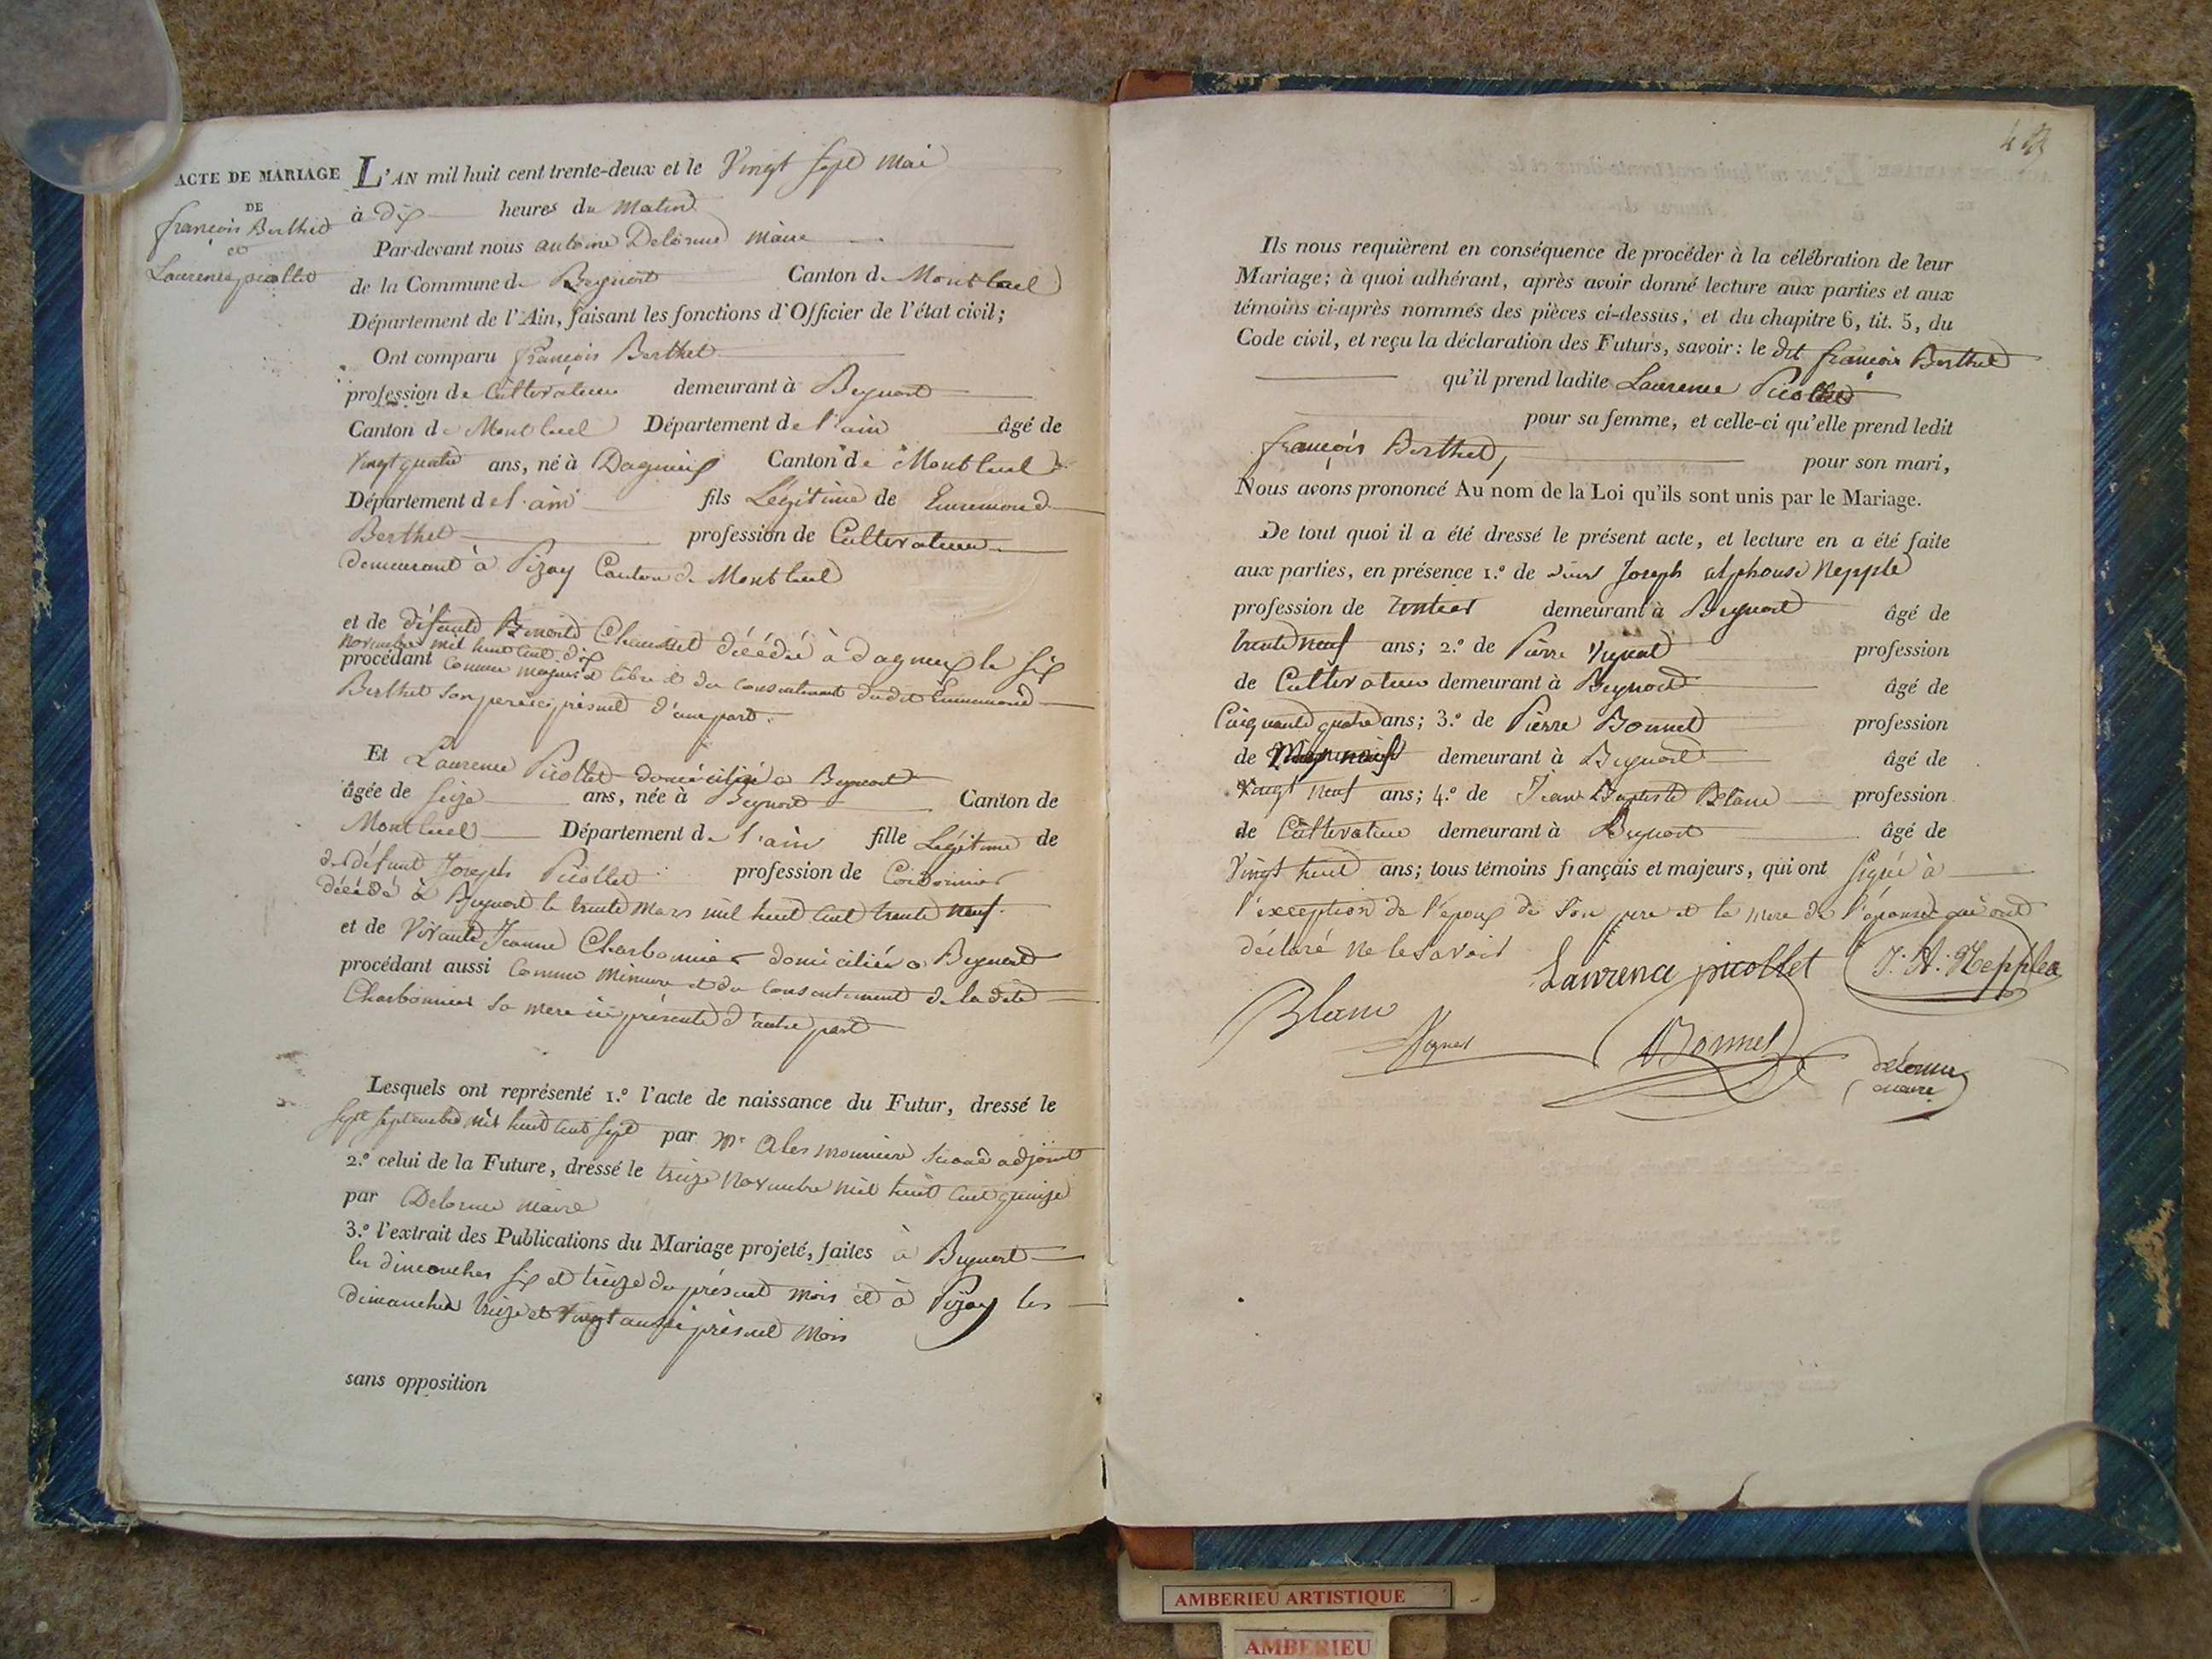 ACTE DE MARIAGE
DE
françois Berthet
et
Laurence picollet
L'AN mil huit cent trente-deux et le Vingt Sept Mai
à dix heures du Matin
Par-devant nous antoine Delorme Maire
de la Commune de Beynost Canton de Montluel
Département de l'Ain, faisant les fonctions d'Officier de l'état civil;
Ont comparu françois Berthet
profession de Cultivateur demeurant à Beynost
Canton de Montluel Département de l'ain âgé de
Vingt quatre ans, né à Dagneux Canton de Montluel
Département de l'ain fils Légitime de Ennemond
Berthet profession de Cultivateur
demeurant à Pizay Canton de Montluel
et de défunte Benoite décédée à dagneux le six
novembre mil huit cent dix
procédant comme majeur et libre et du consentement dudit Ennemond
Berthet son père ici présent d'une part.
Et Laurence Picollet domiciliée a Beynost
âgée de Seize ans, née à Beynost Canton de
Montluel Département de l'ain fille Légitime de
de défunt Joseph Picollet profession de Cordonnier
décédé à Beynost le trente Mars mil huit cent trente neuf.
et de Vivante Jeanne Charbonnier domiciliée a Beynost
procédant aussi Comme Mineure et du consentement de la dite
Charbonnier sa mere ici présente d'autre part
Lesquels ont représenté 1.º l'acte de naissance du Futur, dressé le
Sept septembre mil huit cent sept par Mr second adjoint
2.º celui de la Future, dressé le treize Novembre mil huit cent quinze
par Delorme Maire
3.º l'extrait des Publications du Mariage projeté, faites à Beynost
les dimanches six et treize du présent mois et à Pizay les
dimanches treize et Vingt aussi présent Mois
sans opposition
Ils nous requièrent en conséquence de procéder à la célébration de leur
Mariage; à quoi adhérant, après avoir donné lecture aux parties et aux
témoins ci-après nommés des pièces ci-dessus, et du chapitre 6, tit. 5, du
Code civil, et reçu la déclaration des Futurs, savoir: le dit françois Berthet
qu'il prend ladite Laurence Picollet
pour sa femme, et celle-ci qu'elle prend ledit
françois Berthet, pour son mari,
Nous avons prononcé Au nom de la Loi qu'ils sont unis par le Mariage.
De tout quoi il a été dressé le présent acte, et lecture en a été faite
aux parties, en présence 1.º de sieur Joseph alphonse Nepple
profession de rentier demeurant à Beynost âgé de
trente neuf ans; 2.º de Pierre Vignat profession
de Cultivateur demeurant à Beynost âgé de
Cinquante quatre ans; 3.º de Pierre Bonnet profession
de demeurant à Beynost âgé de
Vingt neuf ans; 4.º de Jean Baptiste Blanc profession
de Cultivateur demeurant à Beynost âgé de
Vingt huit ans; tous témoins français et majeurs, qui ont signé à
l'exception de l'époux de son pere et la mere de l'épouse qui ont
déclaré ne le savoir
Laurence picollet J. A. Nepple
Blanc
Bonnet
delorme
maire
AMBERIEU ARTISTIQUE
AMBERIEU